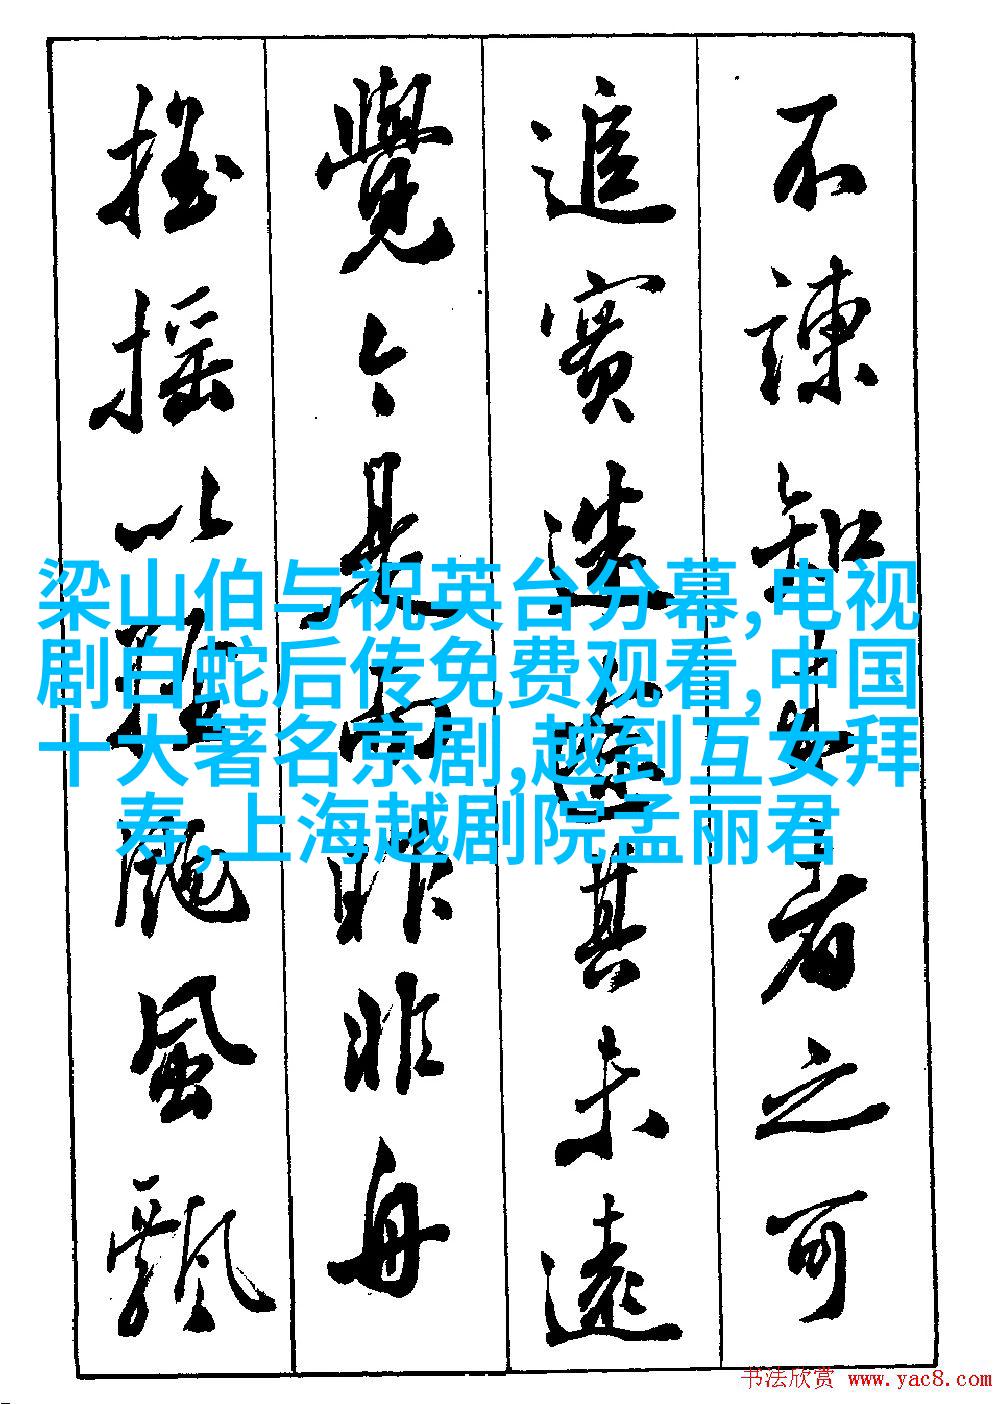 不諫知来者之可
追實迷途其未遠
覺今是而昨非舟
摇摇以輕颺風飄
梁山伯与祝英台分幕,电视
剧白蛇后传免费观看,中国
十大著名京剧,越到互女拜
寿,上海越剧院孟丽君
书法欣赏 www.yac8.com